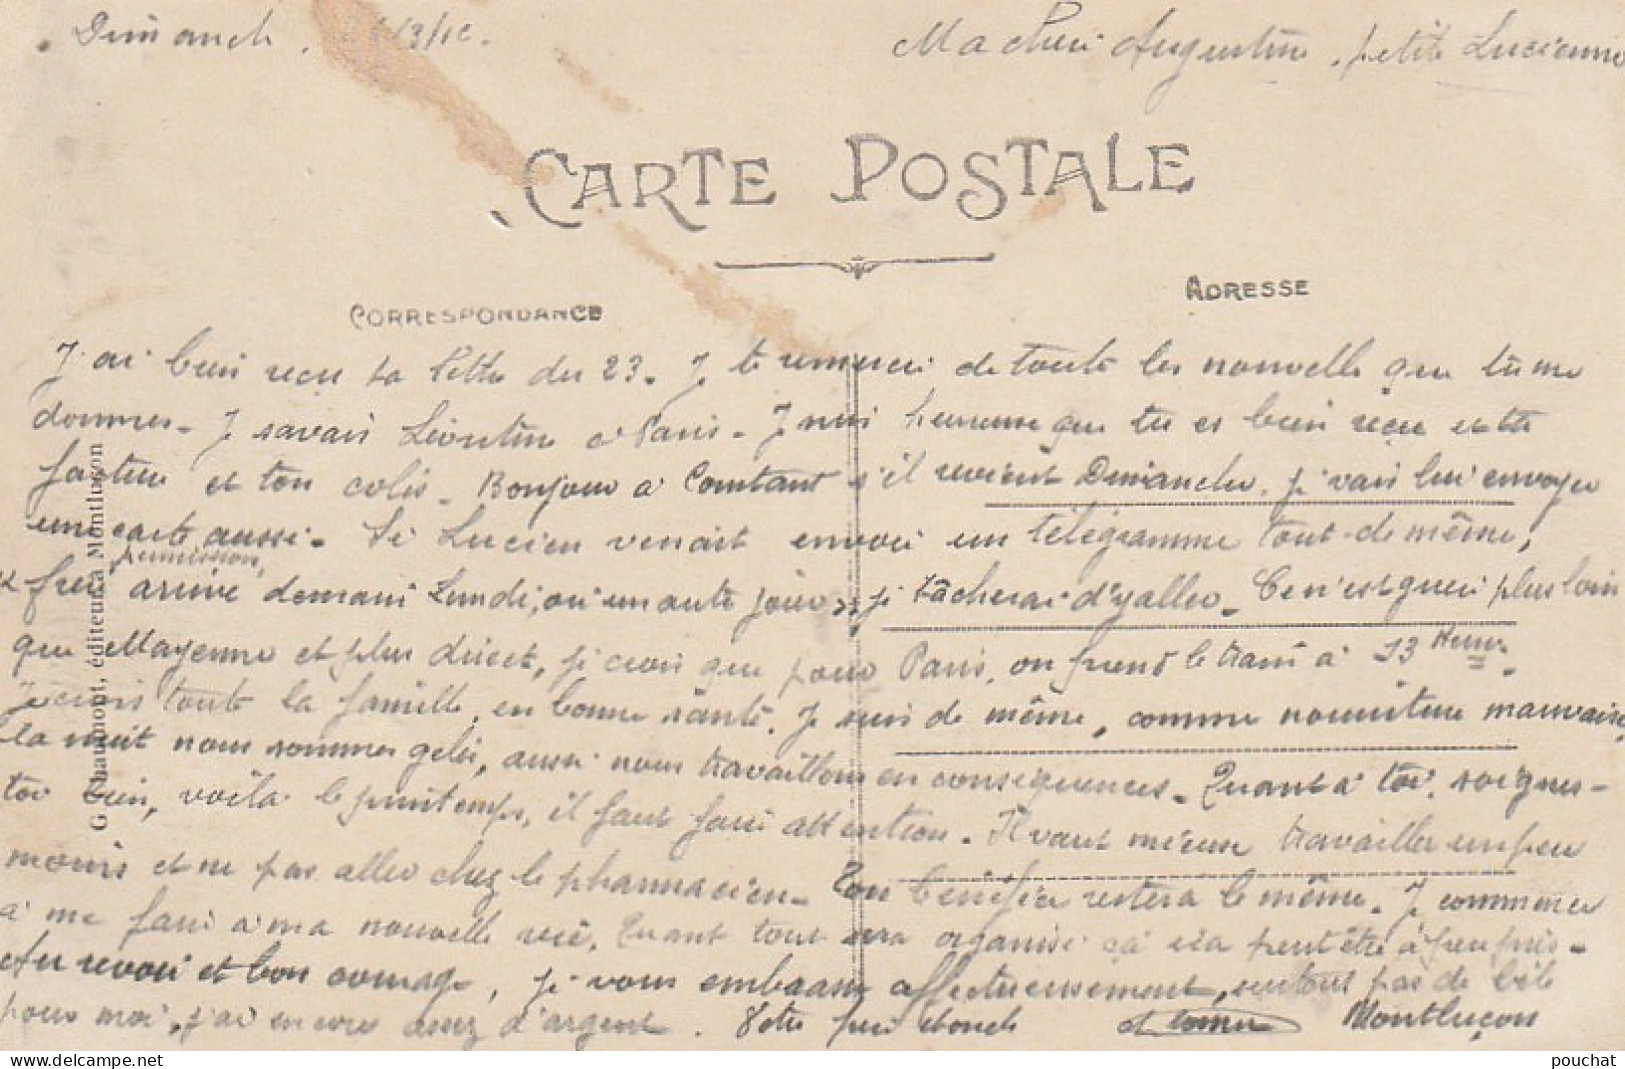 Dimanch. /3/16.
Ma Cheri Augustine, petite Lucienne
CARTE POSTALE
CORRESPONDANCE
ADRESSE
J'ai bien reçu ta lettre du 23. Je te remerci de toute les nouvelle que tu me
donnes. Je savais Léontine à Paris. Je suis heureuse que tu es bien reçu cette
facture et ton colis. Bonjour à Constant s'il revient Dimanche, je vais lui envoyer
une carte aussi. Si Lucien venait envoi un télégramme tout de même,
permission,
arrive demain Lundi, ou un aute jour, je tâcherai d'y aller. Ce n'est guère plus loin
que Mayenne et plus direct, je crois que pour Paris, on prend le train à 13 Heures.
Je crois toute la famille, en bonne santé. Je suis de même, comme nourriture mauvaise,
la nuit nous sommes gelés, aussi nous travaillons en conséquences. Quant à toi, soignes-
toi bien, voilà le printemps, il faut faire attention. Il vaut mieux travailler un peu
moins et ne pas aller chez le pharmacien. Ton bénéfice restera le même. Je commence
à me faire à ma nouvelle vie. Quant tout sera organisé ça ira peut être à peu près.
Au revoir et bon courage, je vous embrasse affectueusement, surtout pas de bile
pour moi, j'ai encore assez d'argent. Votre
Montluçon
G. Chaumont, éditeur à Montluçon
pouchat